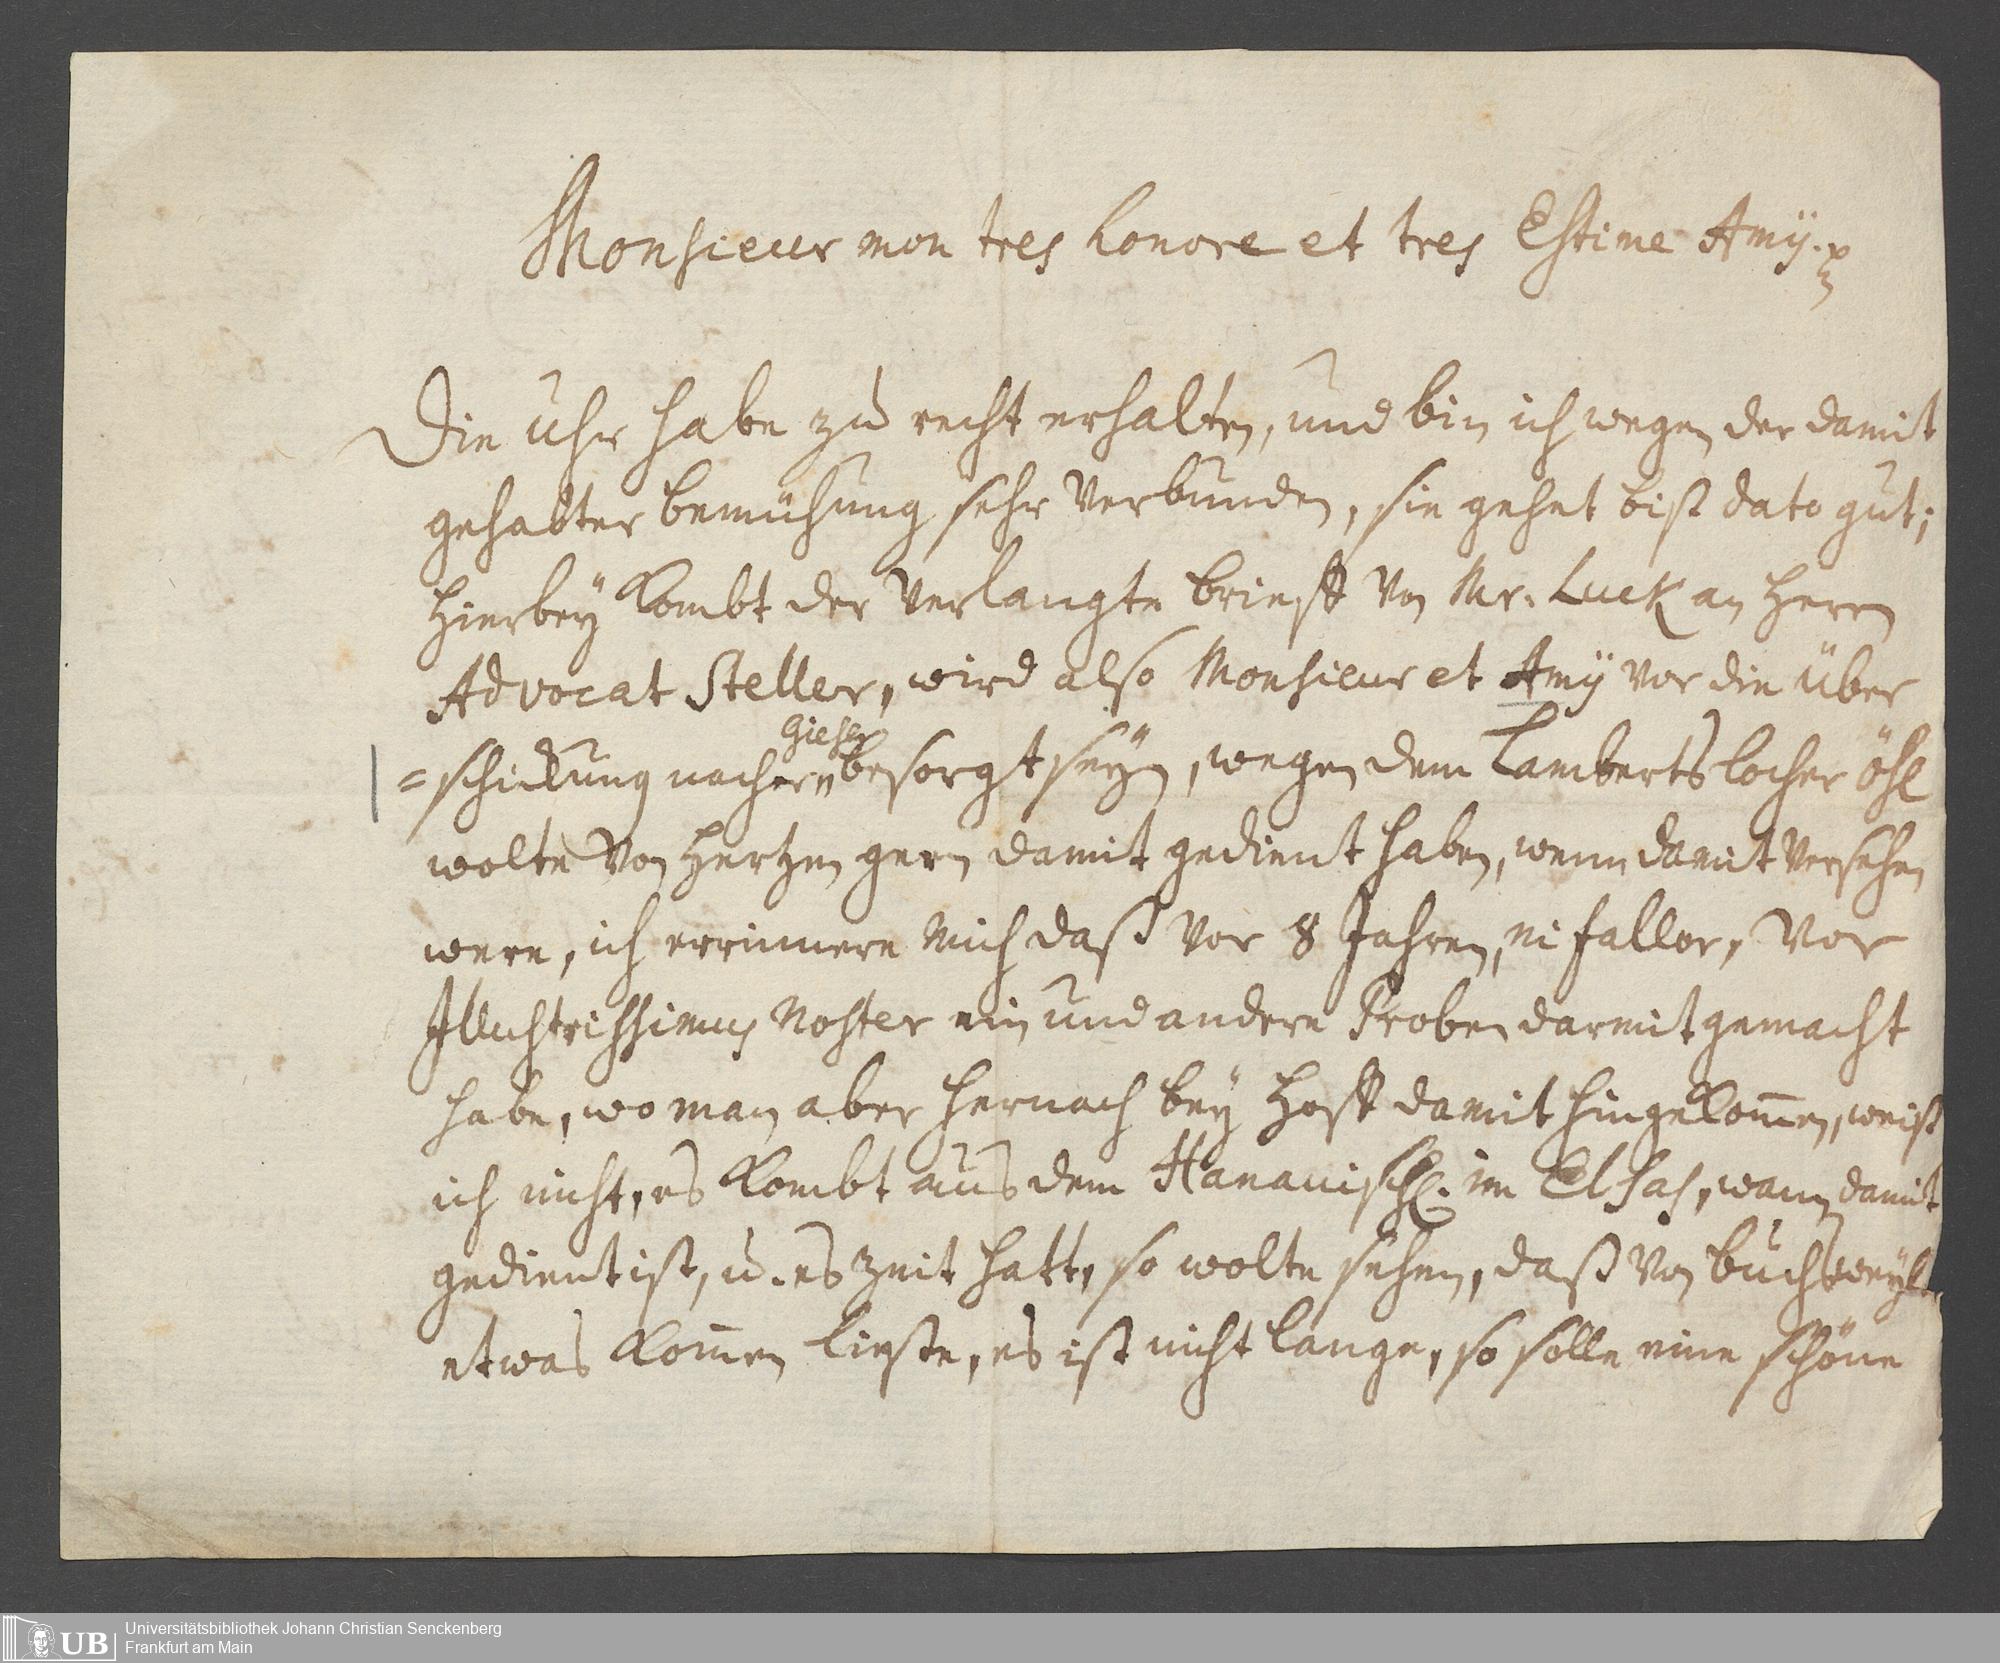 Monsieur mon tres honore et tres Estime Amÿ. p
Die Uhr habe zu recht erhalten, und bin ich wegen der damit
gehabter bemühung sehr verbunden, sie gehet biß dato gut;
hierbeÿ kombt der verlangte brieff von Mr. Luck an Herrn
Advocat Steller, wird also Monsieur et Amÿ vor die über
=schickung nacher Giesen besorgt seÿn, wegen dem Lambertslocher öhl
wolte von Hertzen gern damit gedient haben, wenn damit versehen
were, ich errinnere mich daß vor 8 Jahren, ni fallor, vor
Illustrissimus Noster ein und andere Proben darmit gemacht
habe, wo man aber hernach beÿ Hoff damit hingekom̅en, weiß
ich nicht, es kombt aus dem Hanauisch. im Elsas, wann damit
gedient ist, u. es zeit hatt, so wolte sehen, daß von buchsweÿler
etwas kom̅en ließe, es ist nicht lange, so solle eine schöne
Universitätsbibliothek Johann Christian Senckenberg
UB
Frankfurt am Main